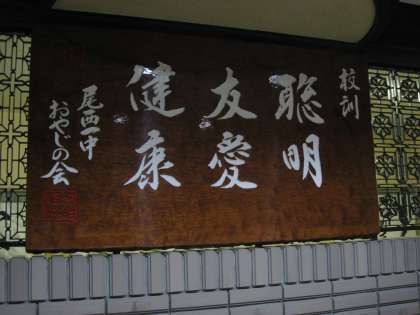 校訓
聡明
友愛
健康
尾西一中
おやじの会